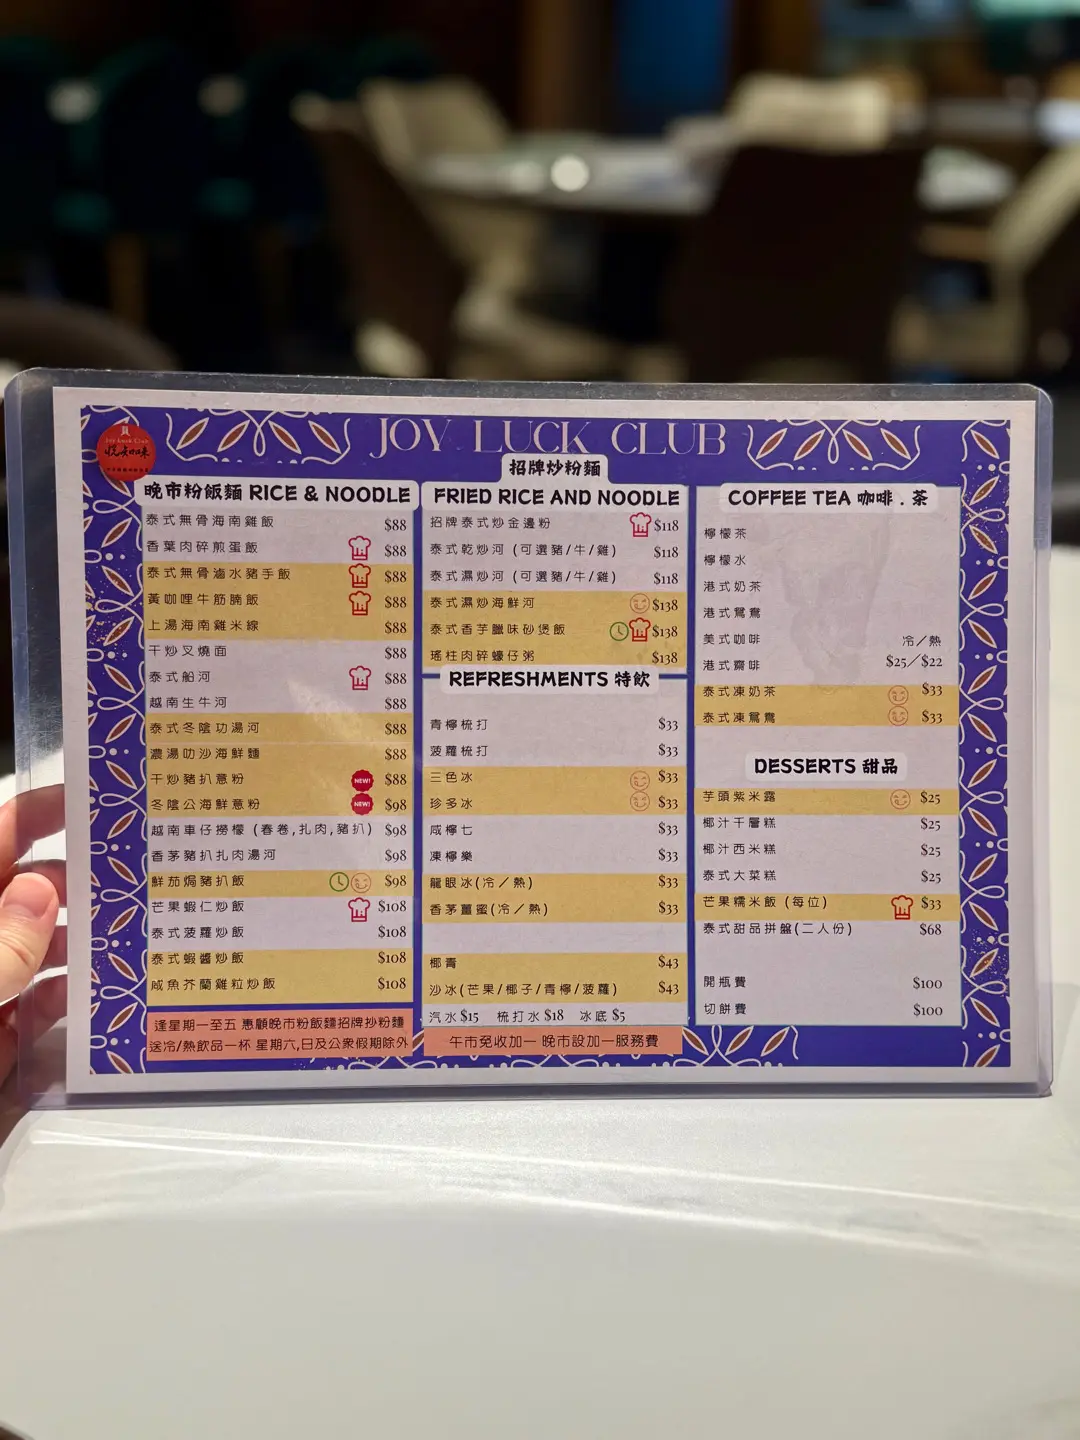 JOY LUCK CLUB
Joy Luck Club
悅知味
晚市粉飯麵 RICE & NOODLE
泰式無骨海南雞飯 $88
香葉肉碎煎蛋飯 $88
泰式無骨滷水豬手飯 $88
黃咖哩牛筋腩飯 $88
上湯海南雞米線 $88
干炒叉燒面 $88
泰式船河 $88
越南生牛河 $88
泰式冬陰功湯河 $88
濃湯叻沙海鮮麵 $88
干炒豬扒意粉 NEW! $88
冬陰公海鮮意粉 NEW! $98
越南車仔撈檬 (春卷,扎肉,豬扒) $98
香茅豬扒扎肉湯河 $98
鮮茄焗豬扒飯 $98
芒果蝦仁炒飯 $108
泰式菠蘿炒飯 $108
泰式蝦醬炒飯 $108
咸魚芥蘭雞粒炒飯 $108
逢星期一至五 惠顧晚市粉飯麵招牌抄粉麵
送冷/熱飲品一杯 星期六,日及公衆假期除外
招牌炒粉麵
FRIED RICE AND NOODLE
招牌泰式炒金邊粉 $118
泰式乾炒河 (可選豬/牛/雞) $118
泰式濕炒河 (可選豬/牛/雞) $118
泰式濕炒海鮮河 $138
泰式香芋臘味砂煲飯 $138
瑤柱肉碎蠔仔粥 $138
REFRESHMENTS 特飲
青檸梳打 $33
菠蘿梳打 $33
三色冰 $33
珍多冰 $33
咸檸七 $33
凍檸樂 $33
龍眼冰(冷/熱) $33
香茅薑蜜(冷/熱) $33
椰青 $43
沙冰(芒果/椰子/青檸/菠蘿) $43
汽水 $15 梳打水 $18 冰底 $5
午市免收加一 晚市設加一服務費
COFFEE TEA 咖啡 . 茶
檸檬茶
檸檬水
港式奶茶
港式鴛鴦
美式咖啡 冷/熱
港式齋啡 $25/$22
泰式凍奶茶 $33
泰式凍鴛鴦 $33
DESSERTS 甜品
芋頭紫米露 $25
椰汁千層糕 $25
椰汁西米糕 $25
泰式大菜糕 $25
芒果糯米飯 (每位) $33
泰式甜品拼盤(二人份) $68
開瓶費 $100
切餅費 $100